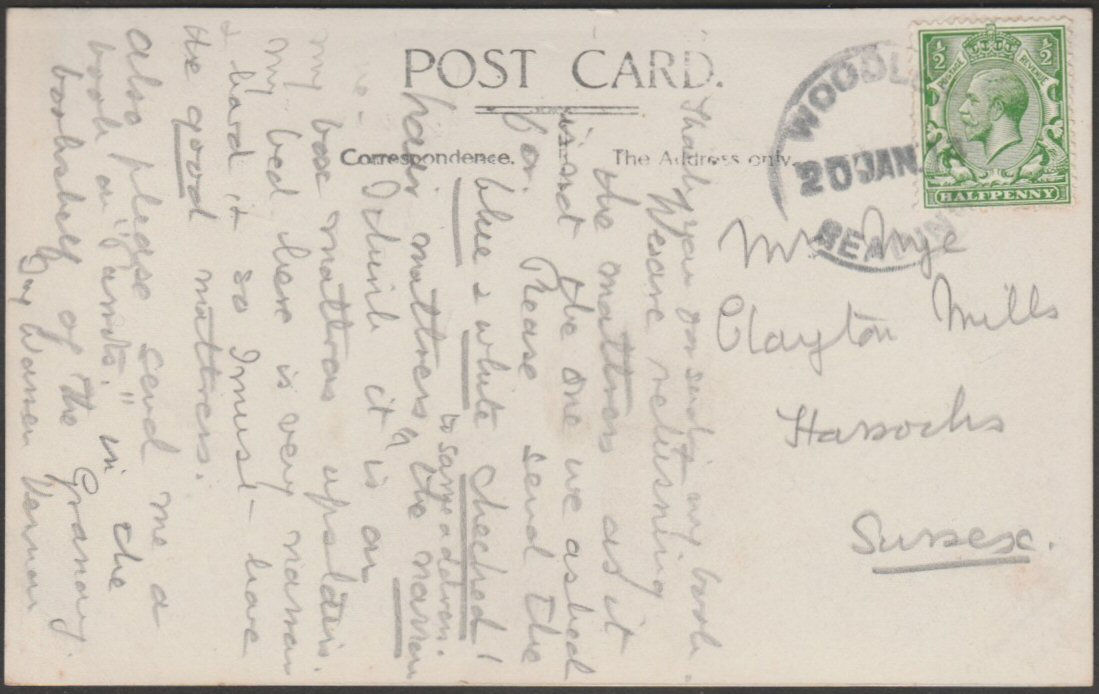 POST CARD.
Correspondence.
The Address only.
½ ½
POSTAGE REVENUE
HALFPENNY
WOODL
20 JAN
READIN
Mrs
Clayton Mills
Hassocks
Sussex.
Thank you for my book
We are returning
the mattress as it
isnt the one we asked
for. Please send the
blue & white checked!
to same address.
hair mattress the narrow
I think it is on
my box mattress upstairs.
My bed here is very narrow
& hard it so I must have
the good mattress.
also please send me a
book on "ants" in the
bookshelf of the Granary.